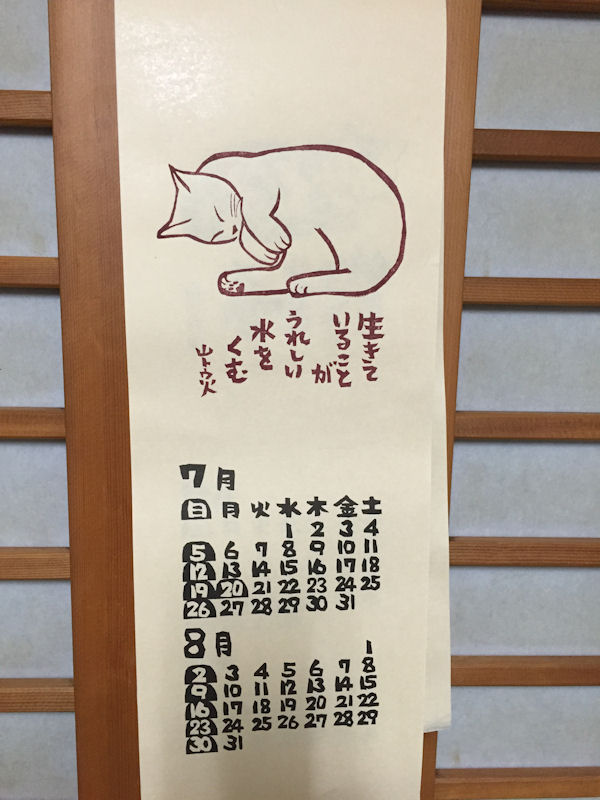 生きて
いること
が
うれしい
水を
くむ
山トウ火
7月
日 月 火 水 木 金 土
1 2 3 4
5 6 7 8 9 10 11
12 13 14 15 16 17 18
19 20 21 22 23 24 25
26 27 28 29 30 31
8月
1
2 3 4 5 6 7 8
9 10 11 12 13 14 15
16 17 18 19 20 21 22
23 24 25 26 27 28 29
30 31